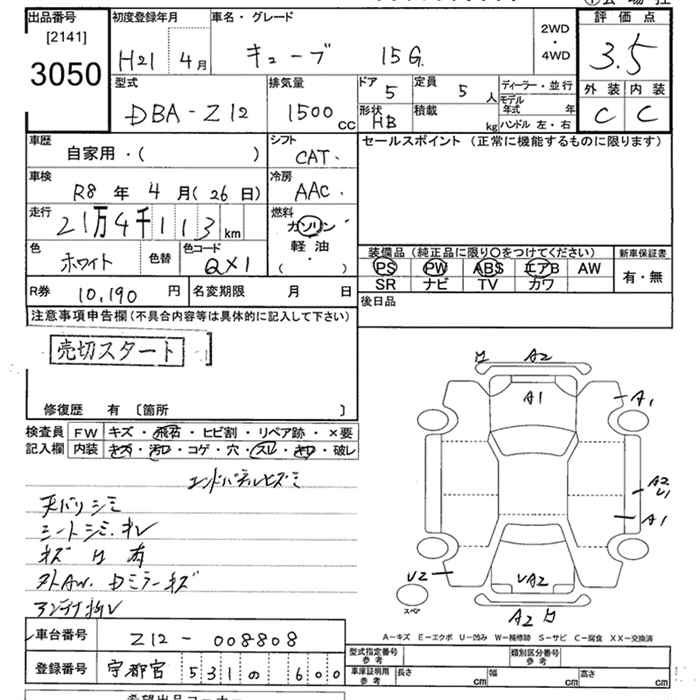 出品番号 [2141] 3050
初度登録年月 H21 4月
車名・グレード キューブ 15G.
2WD・4WD
評価点 3.5
外装 C 内装 C
型式 DBA-Z12
排気量 1500cc
ドア 5 定員 5人
形状 HB 積載 kg
ディーラー・並行
モデル年式 年
ハンドル 左・右
車歴 自家用・( )
シフト CAT・
セールスポイント (正常に機能するものに限ります)
車検 R8年 4月(26日)
冷房 AAC・
走行 21万4千113km
燃料 ガソリン・軽油・( )
色 ホワイト 色替
色コード QX1
装備品 (純正品に限り○をつけてください)
PS PW ABS エアB AW
SR ナビ TV カワ
新車保証書 有・無
R券 10,190円 名変期限 月 日
後日品
注意事項申告欄(不具合内容等は具体的に記入して下さい)
売切スタート
修復歴 有 〔箇所 〕
検査員 FW キズ・飛石・ヒビ割・リペア跡・×要
記入欄 内装 キズ・汚れ・コゲ・穴・スレ・キワ・破レ
エンドパネルヒズミ
天バリシミ
シートシミ.キレ
キズ 凹 有
外AW. Dミラーキズ
アンテナ折レ
A2
A1
A1
A2
U1
A1
U2
UA2
A2
スペア
A-キズ E-エクボ U-凹み W-補修跡 S-サビ C-腐食 XX-交換済
車台番号 Z12-008808
登録番号 宇都宮 531 の 600
型式指定番号 参考
類別区分番号 参考
車庫証明用 参考 長さ cm 幅 cm 高さ cm